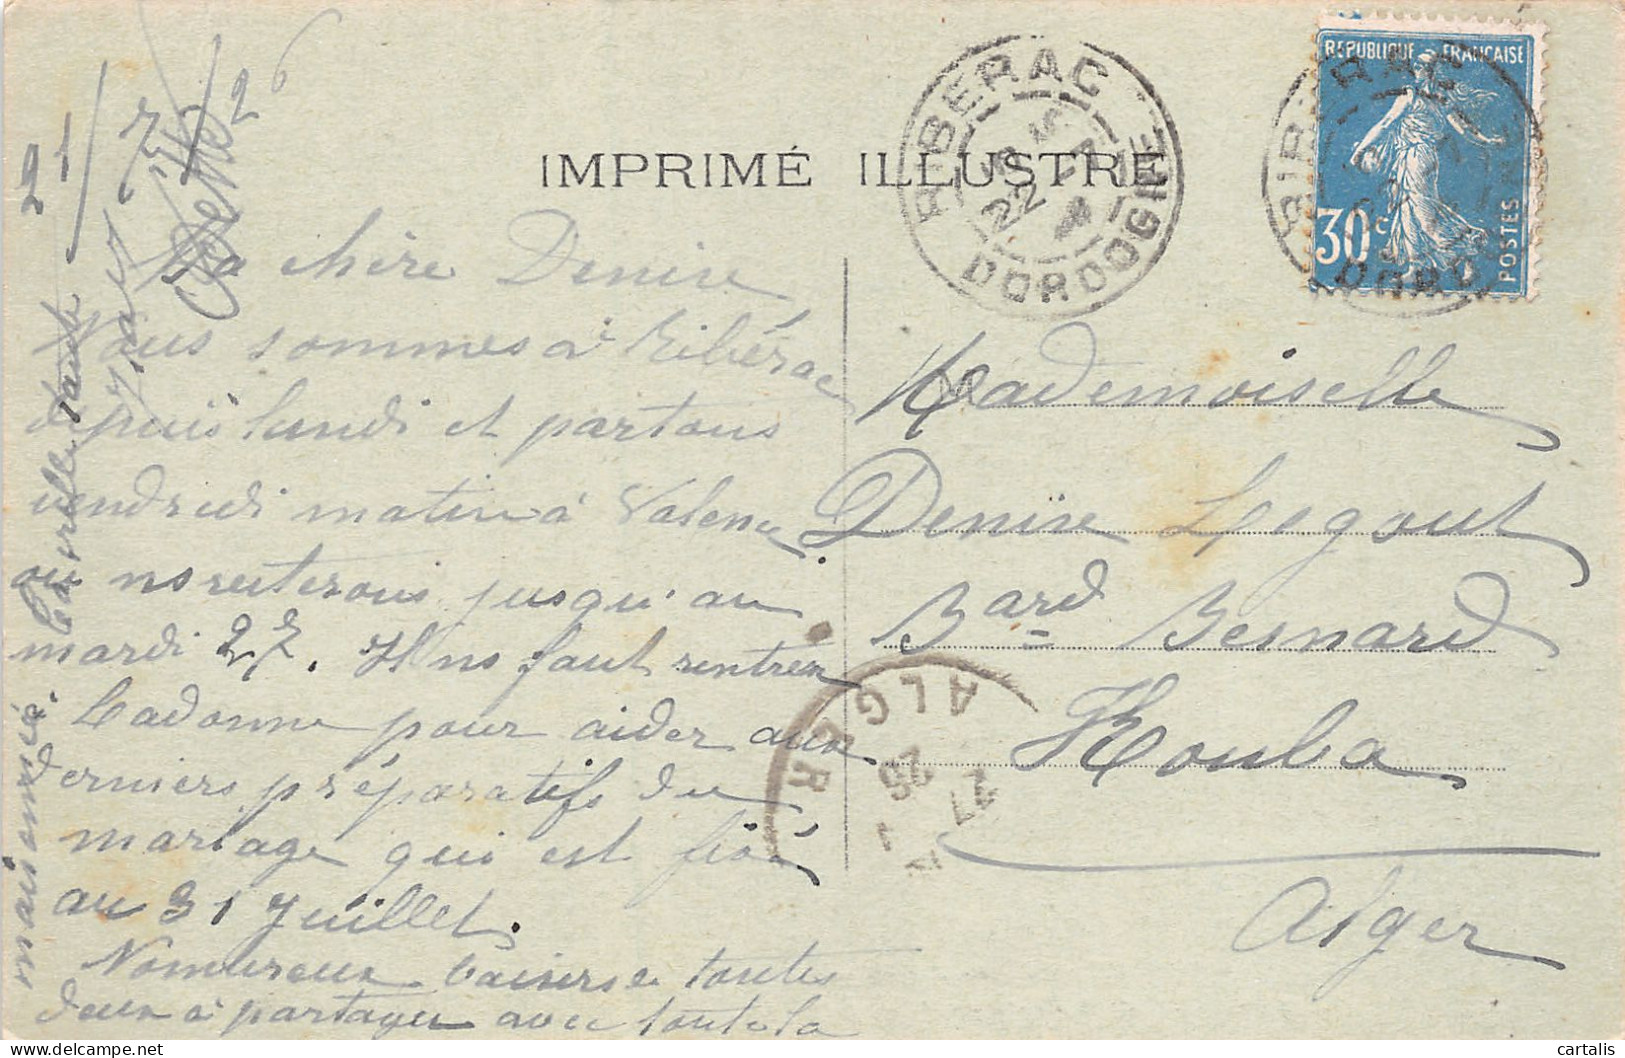 21/7/26
IMPRIMÉ ILLUSTRÉ
RIBERAC
22
DORDOGNE
REPUBLIQUE FRANÇAISE
30c
POSTES
Ma chère Denise
Nous sommes à Ribérac
depuis lundi et partons
vendredi matin à Valence
où ns resterons jusqu'au
mardi 27. Il ns faut rentrer
Cadonne pour aider aux
derniers préparatifs du
mariage qui est fixé
au 31 Juillet.
Nomureux baisers à toutes
deux à partager avec toute la
maisonnée.
M
Mademoiselle
Denise Legout
Bard Bernard
Kouba
Alger
ALGER
cartalis